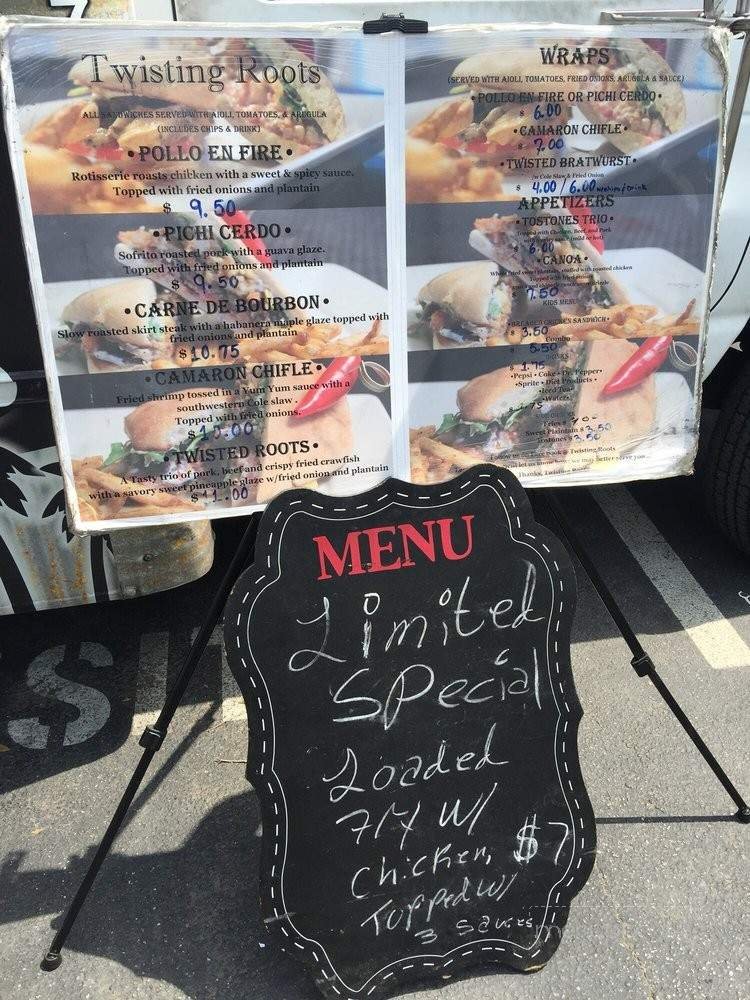 Twisting Roots
ALL SANDWICHES SERVED WITH AIOLI, TOMATOES, & ARUGULA
(INCLUDES CHIPS & DRINK)
• POLLO EN FIRE •
Rotisserie roasts chibken with a sweet & spicy sauce.
Topped with fried onions and plantain
$ 9.50
• PICHI CERDO •
Sofrito roasted pork with a guava glaze.
Topped with fried onions and plantain
$ 9.50
• CARNE DE BOURBON •
Slow roasted skirt steak with a habanera maple glaze topped with
fried onions and plantain
$ 10.75
• CAMARON CHIFLE •
Fried shrimp tossed in a Yum Yum sauce with a
southwestern Cole slaw .
Topped with fried onions.
$ 10.00
• TWISTED ROOTS •
A Tasty trio of pork, beef and crispy fried crawfish
with a savory sweet pineapple glaze w/fried onion and plantain
$ 11.00
WRAPS
(SERVED WITH AIOLI, TOMATOES, FRIED ONIONS, ARUGULA & SAUCE)
• POLLO EN FIRE OR PICHI CERDO •
$ 6.00
• CAMARON CHIFLE •
$ 7.00
• TWISTED BRATWURST •
/w Cole Slaw & Fried Onion
$ 4.00 / 6.00 w/chips/drink
APPETIZERS
• TOSTONES TRIO •
Topped with Chicken, Beef, and Pork
$ 6.00
• CANOA •
Whole fried sweet plantain, stuffed with roasted chicken
Topped with fried onions
$ 7.50
KIDS MENU
• BREADED CHICKEN SANDWICH •
$ 3.50
Combo
$ 5.50
DRINKS
$ 1.75
• Pepsi • Coke • Dr. Pepper •
• Sprite • Diet Products •
• Iced Tea •
• Water •
Fries $
Sweet Plantain $ 3.50
Tostones $ 3.50
Follow us on Face Book @ Twisting Roots
let us know how we may better serve you...
Thanks, Twisting Roots
MENU
Limited
Special
Loaded
7/7 W/
Chicken, $7
Topped W/
3 Sauces